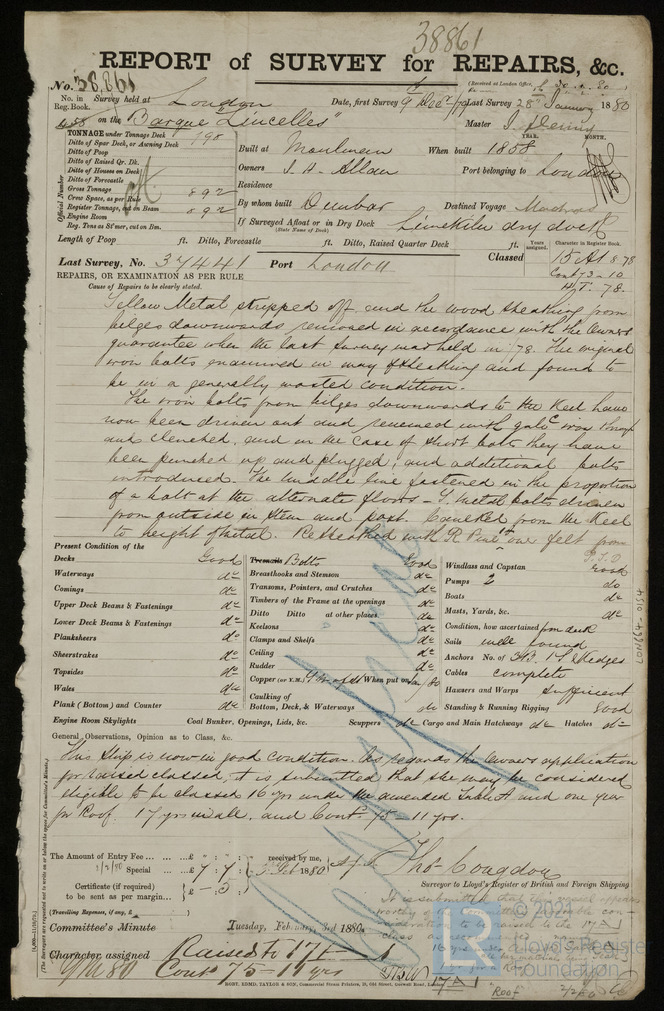 38861
REPORT of SURVEY for REPAIRS, &c.
No. 38,861
(Received at London Office,
No. in Reg. Book. Survey held at London Date, first Survey 9 Dec 79 Last Survey 28th January 1880
438 on the "Barque Lincelles" Master J. Denny
TONNAGE under Tonnage Deck 798
Ditto of Spar Deck, or Awning Deck
Ditto of Poop
Ditto of Raised Qr. Dk.
Ditto of Houses on Deck
Ditto of Forecastle
Gross Tonnage 892
Crew Space, as per Rule
Register Tonnage, cut on Beam 892
Engine Room
Reg. Tons as St'mer, cut on Bm.
Official Number
YEAR. MONTH.
Built at Moulmein When built 1858
Owners J. H. Allan Port belonging to London
Residence
By whom built Dunbar Destined Voyage Madras
If Surveyed Afloat or in Dry Dock Limekiln dry dock
(State Name of Dock)
Length of Poop ft. Ditto, Forecastle ft. Ditto, Raised Quarter Deck ft.
Years assigned. Character in Register Book.
Last Survey, No. 37441 Port London Classed 15 A1 8-78
Cont 73-10
H.T. 78.
REPAIRS, OR EXAMINATION AS PER RULE
Cause of Repairs to be clearly stated.
Yellow Metal stripped off and the wood sheathing from
bilges downwards removed in accordance with the Owners
guarantee when the last survey was held in '78. The original
iron bolts examined in way of sheathing and found to
be in a generally wasted condition.
The iron bolts from bilges downwards to the Keel have
now been driven out and renewed with galvd iron through
and clenched, and in the case of short bolts they have
been punched up and plugged, and additional bolts
introduced. The middle line fastened in the proportion
of a bolt at the alternate floors - Y. metal bolts driven
from outside in stem and post. Caulked from the Keel
to height of metal. Resheathed with R Pine over felt from
P.T.O
Present Condition of the
Decks Good
Waterways do
Comings do
Upper Deck Beams & Fastenings do
Lower Deck Beams & Fastenings do
Planksheers do
Sheerstrakes do
Topsides do
Wales do
Plank (Bottom) and Counter do
Engine Room Skylights
Treenails Bolts Good
Breasthooks and Stemson do
Transoms, Pointers, and Crutches do
Timbers of the Frame at the openings do
Ditto Ditto at other places. do
Keelsons do
Clamps and Shelfs do
Ceiling do
Rudder do
Copper (or Y.M.) When put on Jan /80
Caulking of Bottom, Deck, & Waterways do
Coal Bunker, Openings, Lids, &c. Scuppers do Cargo and Main Hatchways do Hatches do
Windlass and Capstan Good
Pumps 2 do
Boats do
Masts, Yards, &c. do
Condition, how ascertained from deck
Sails well found
Anchors No. of 3B. 1S. 2 Kedges
Cables complete
Hawsers and Warps sufficient
Standing & Running Rigging Good
LON664-0154
General Observations, Opinion as to Class, &c.
This Ship is now in good condition. As regards the Owners application
for raised classed, it is submitted that she may be considered
eligible to be classed 16 yrs under the amended Table A and one year
for Roof. 17 yrs in all, and Contd. 75 - 11 yrs.
The Amount of Entry Fee ... £ " : " : " received by me,
2/2/80 Special ... £ 7 : 7 : 3 Feb 1880
Certificate (if required) £ - 5
to be sent as per margin...
(Travelling Expenses, if any, £ )
Thos Congdon
Surveyor to Lloyd's Register of British and Foreign Shipping
Committee's Minute Tuesday, February, 3rd 1880.
Character assigned Raised to 17 A 1
Contd 75 - 11 yrs
17 A 1
"Roof" 2/2/80
© 2021
LR
Lloyd's Register
Foundation